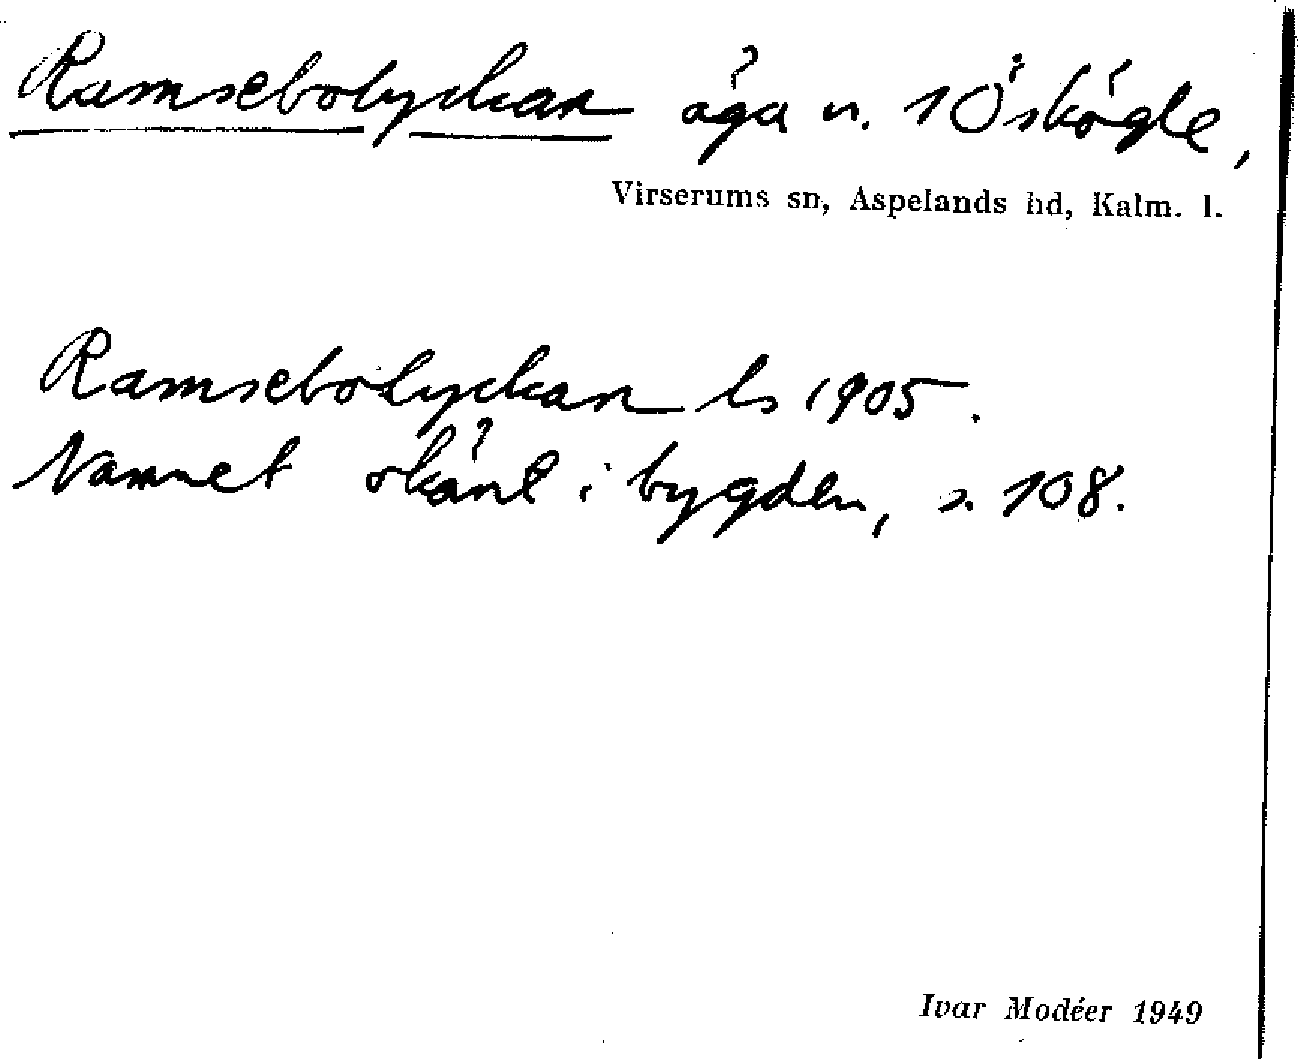 Ramsebolyckan äga n. 1 Öskögle,
Virserums sn, Aspelands hd, Kalm. l.
Ramsebolyckan ls 1905.
Namnet okänt i bygden, s. 108.
Ivar Modéer 1949